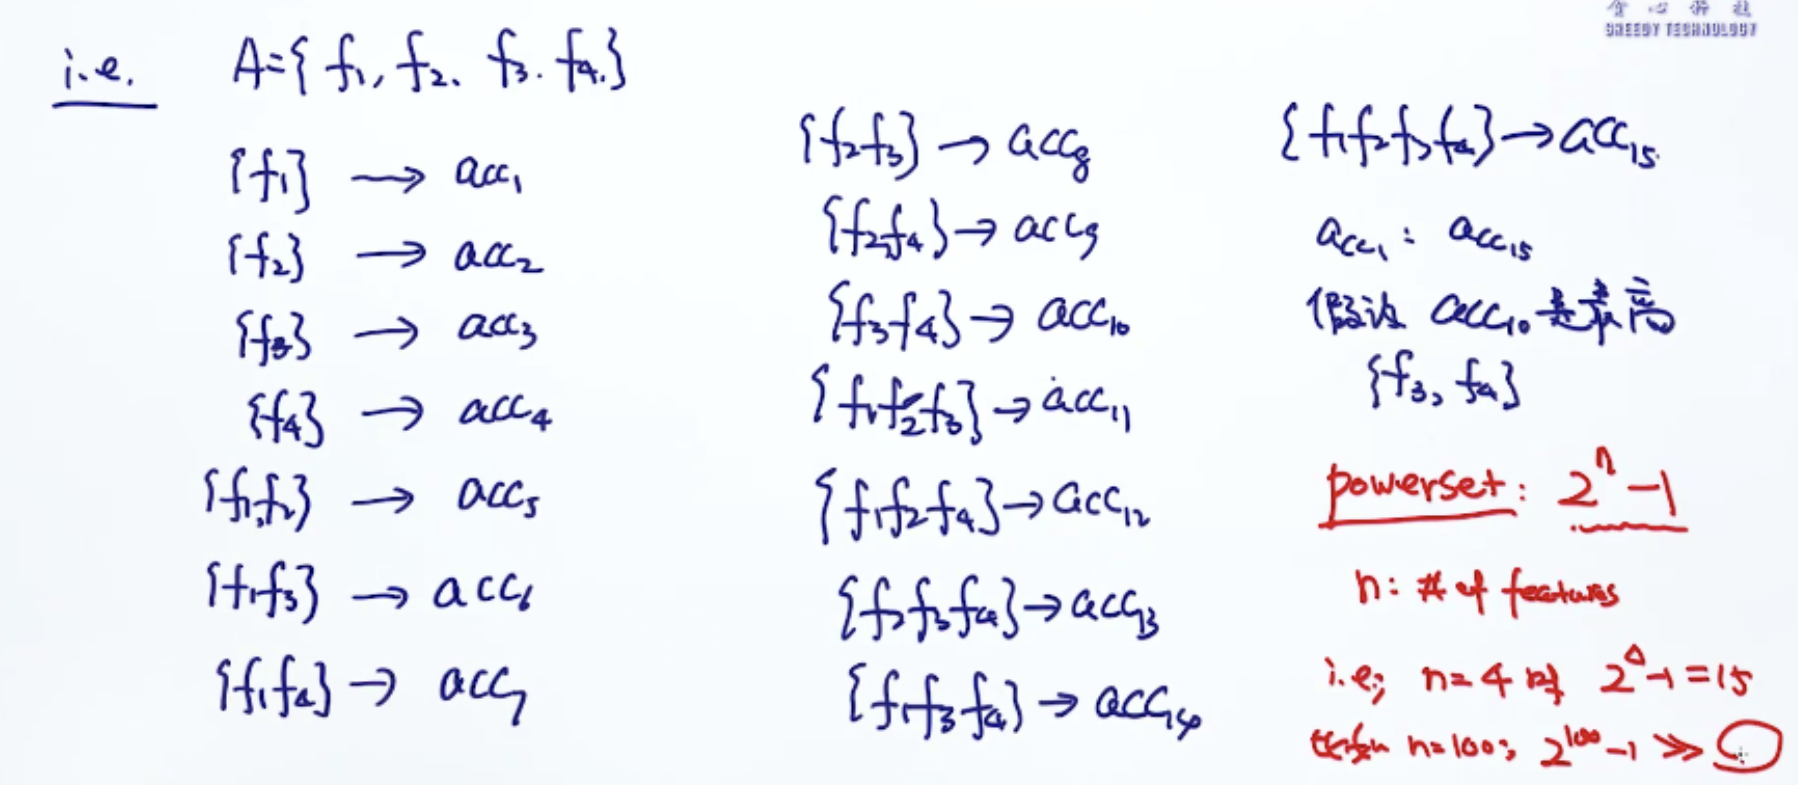 贪心科技
GREEDY TECHNOLOGY
i.e. A={f₁, f₂. f₃. f₄.}
{f₁} → acc₁
{f₂} → acc₂
{f₃} → acc₃
{f₄} → acc₄
{f₁,f₂} → acc₅
{f₁f₃} → acc₆
{f₁f₄} → acc₇
{f₂f₃} → acc₈
{f₂f₄} → acc₉
{f₃f₄} → acc₁₀
{f₁f₂f₃} → acc₁₁
{f₁f₂f₄} → acc₁₂
{f₂f₃f₄} → acc₁₃
{f₁f₃f₄} → acc₁₄
{f₁f₂f₃f₄} → acc₁₅
acc₁ : acc₁₅
假设 acc₁₀ 是最高
{f₃, f₄}
powerset: 2ⁿ-1
n: # of features
i.e; n=4 时 2⁴-1=15
比如 n=100; 2¹⁰⁰-1 ≫